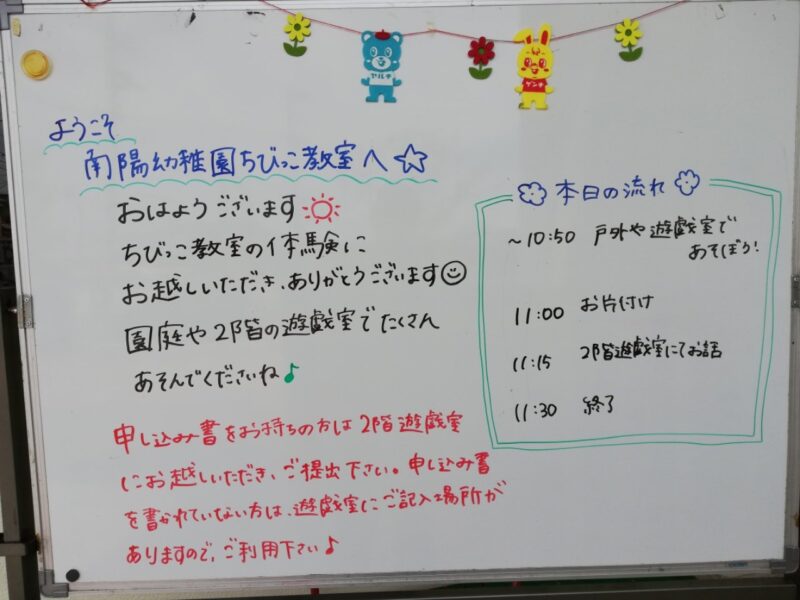 ヤルキ
ゲンキ
ようこそ
南陽幼稚園ちびっこ教室へ☆
おはようございます
ちびっこ教室の体験に
お越しいただき、ありがとうございます
園庭や2階の遊戯室でたくさん
あそんでくださいね♪
申し込み書をお持ちの方は2階遊戯室
にお越しいただき、ご提出下さい。申し込み書
を書かれていない方は、遊戯室にご記入場所が
ありますので、ご利用下さい♪
本日の流れ
～10:50 戸外や遊戯室で
あそぼう!
11:00 お片付け
11:15 2階遊戯室にてお話
11:30 終了